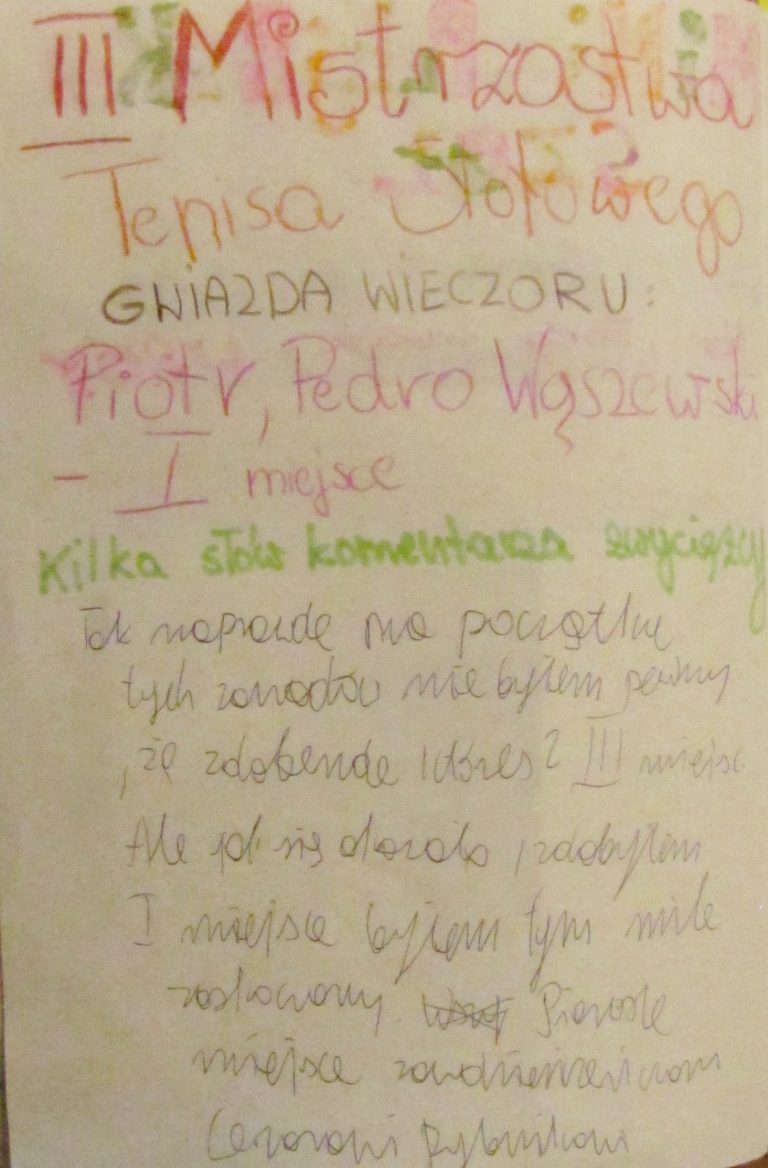 III Mistrzostwa
Tenisa Stołowego
GWIAZDA WIECZORU:
Piotr, Pedro Wąszewski
- I miejsce
Kilka słów komentarza zwycięzcy
Tak naprawdę na początku
tych zawodów nie byłem pewny
, że zdobende III miejsc
Ale jak się okazało, zdobyłem
I miejsce byłem tym mile
zaskoczony. Pierwsze
miejsce